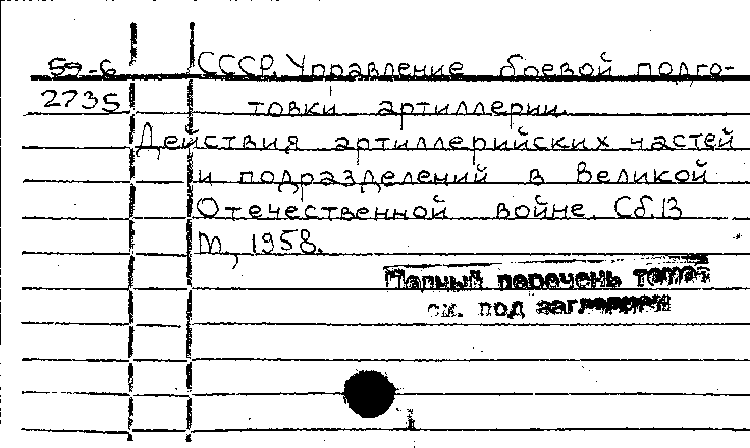 59-6 СССР. Управление боевой подго-
2735 товки артиллерии.
Действия артиллерийских частей
и подразделений в Великой
Отечественной войне. Сб. 13
М., 1958.
Полный перечень томов
см. под заглавием